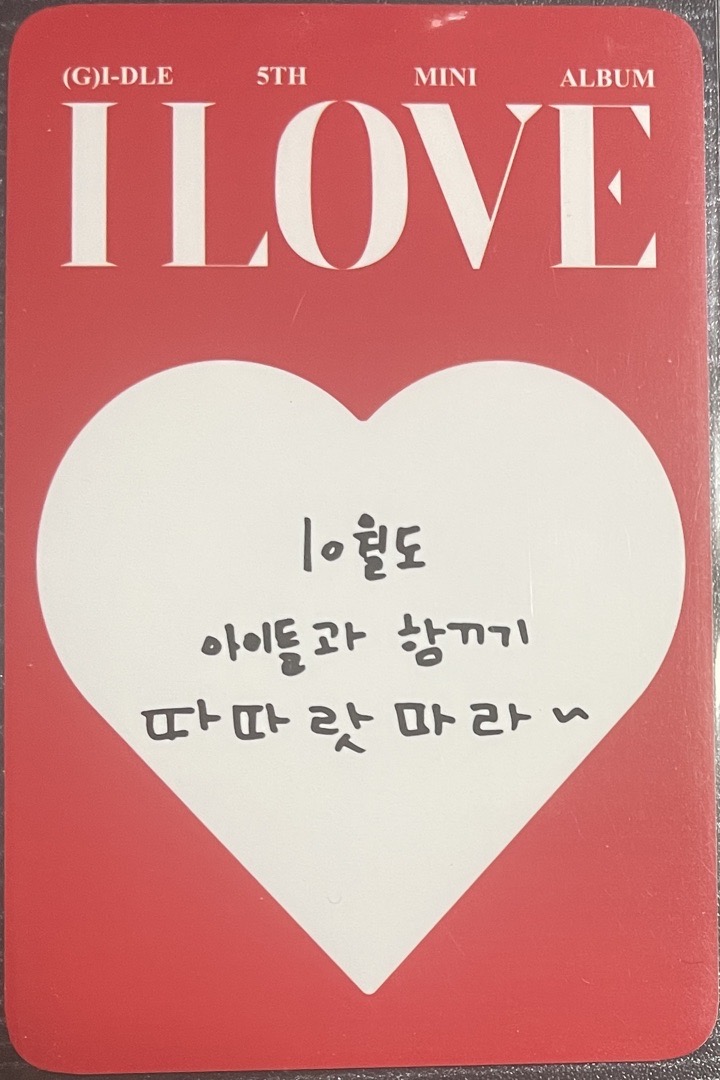 (G)I-DLE 5TH MINI ALBUM
I LOVE
10월도
아이들과 함끼기
따따랏마라~